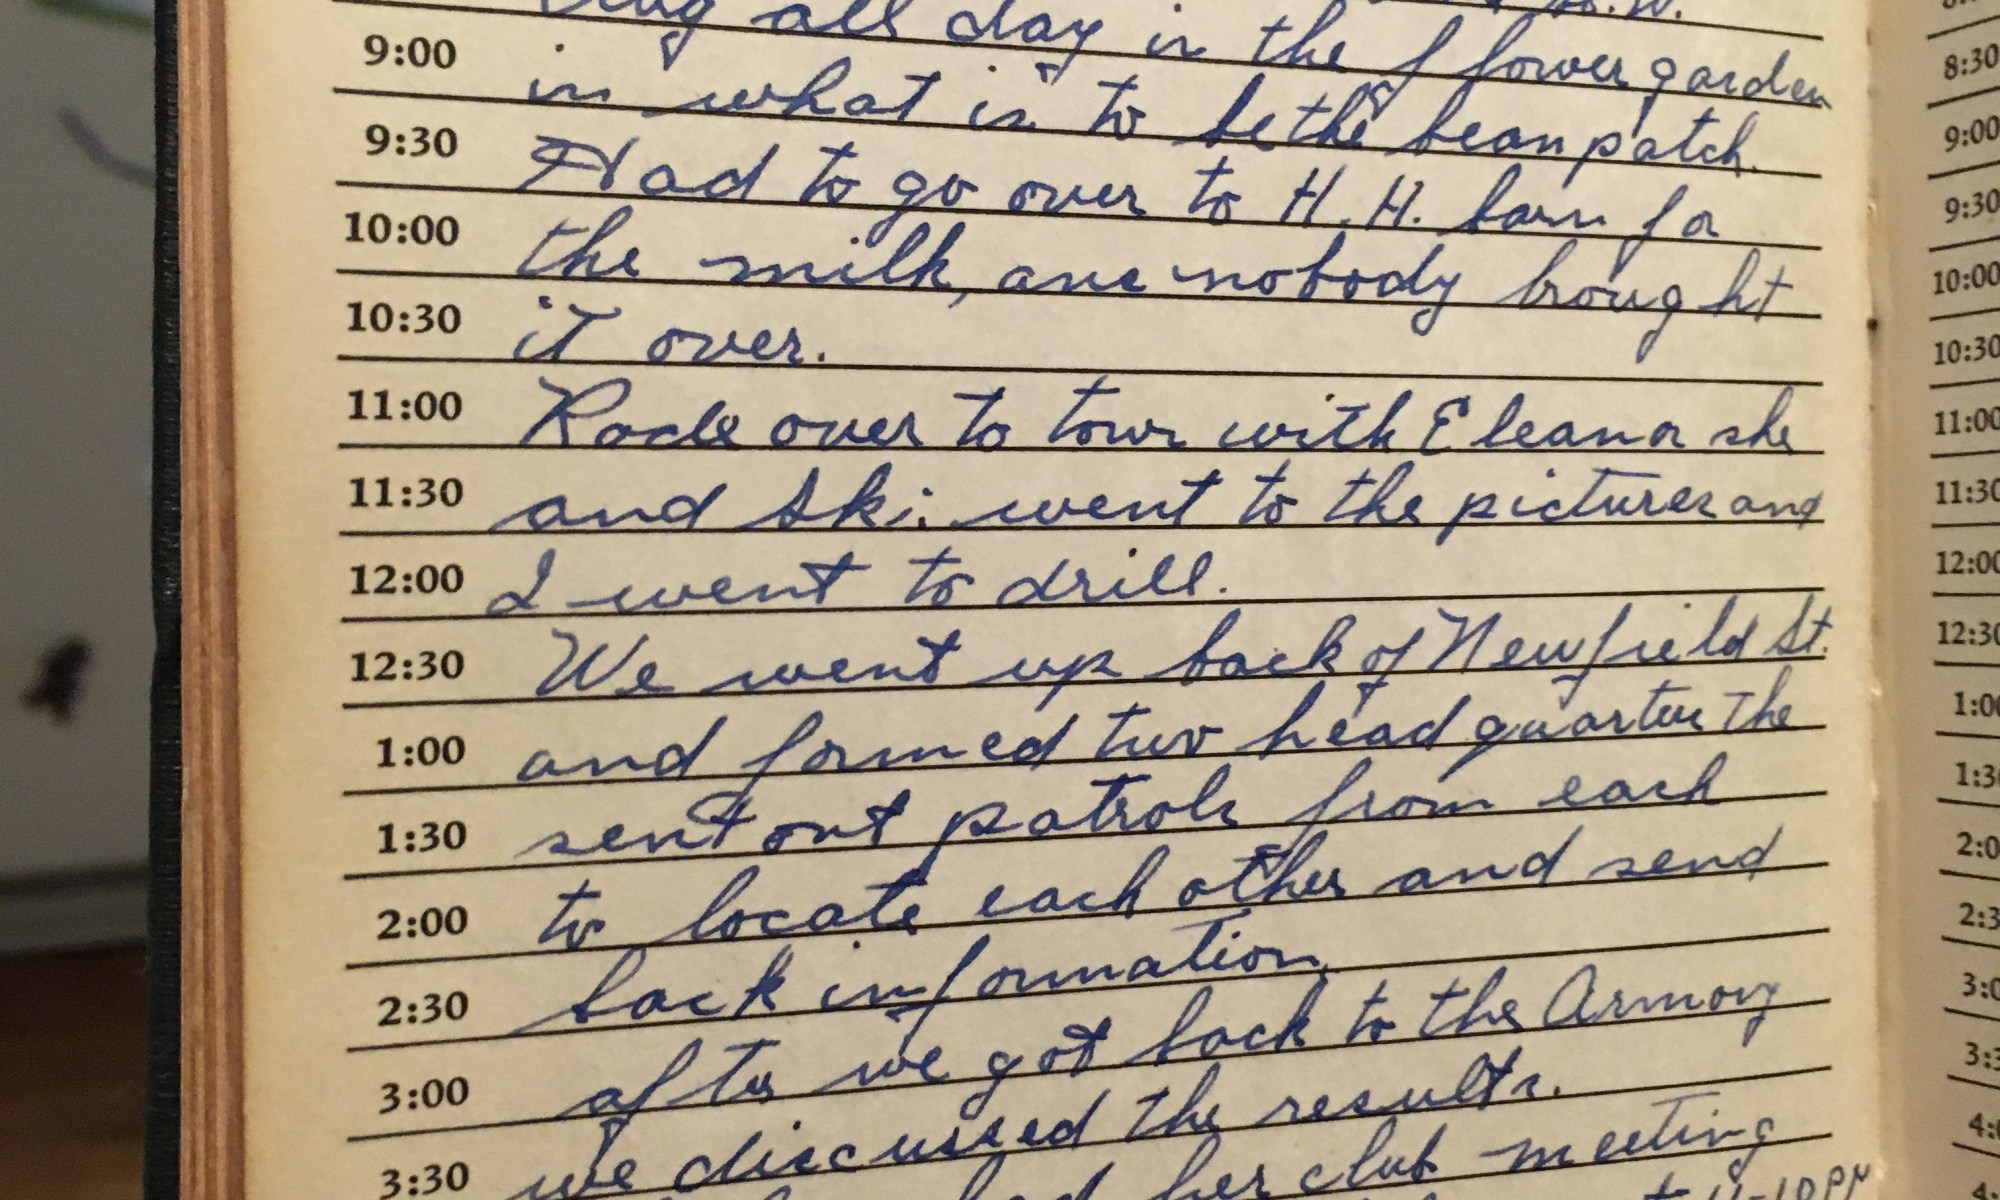 all day in the flower garden
9:00 in what is to be the bean patch.
9:30 Had to go over to H.H. barn for
10:00 the milk, and nobody brought
10:30 it over.
11:00 Rode over to town with Eleanor she
11:30 and Ski. went to the pictures and
12:00 I went to drill.
12:30 We went up back of Newfield St.
1:00 and formed two head quarter the
1:30 sent out patrols from each
2:00 to locate each other and send
2:30 back information
3:00 after we got back to the Armory
3:30 we discussed the results.
had her club meeting
10 PM
8:30
9:00
9:30
10:00
10:30
11:00
11:30
12:00
12:30
1:00